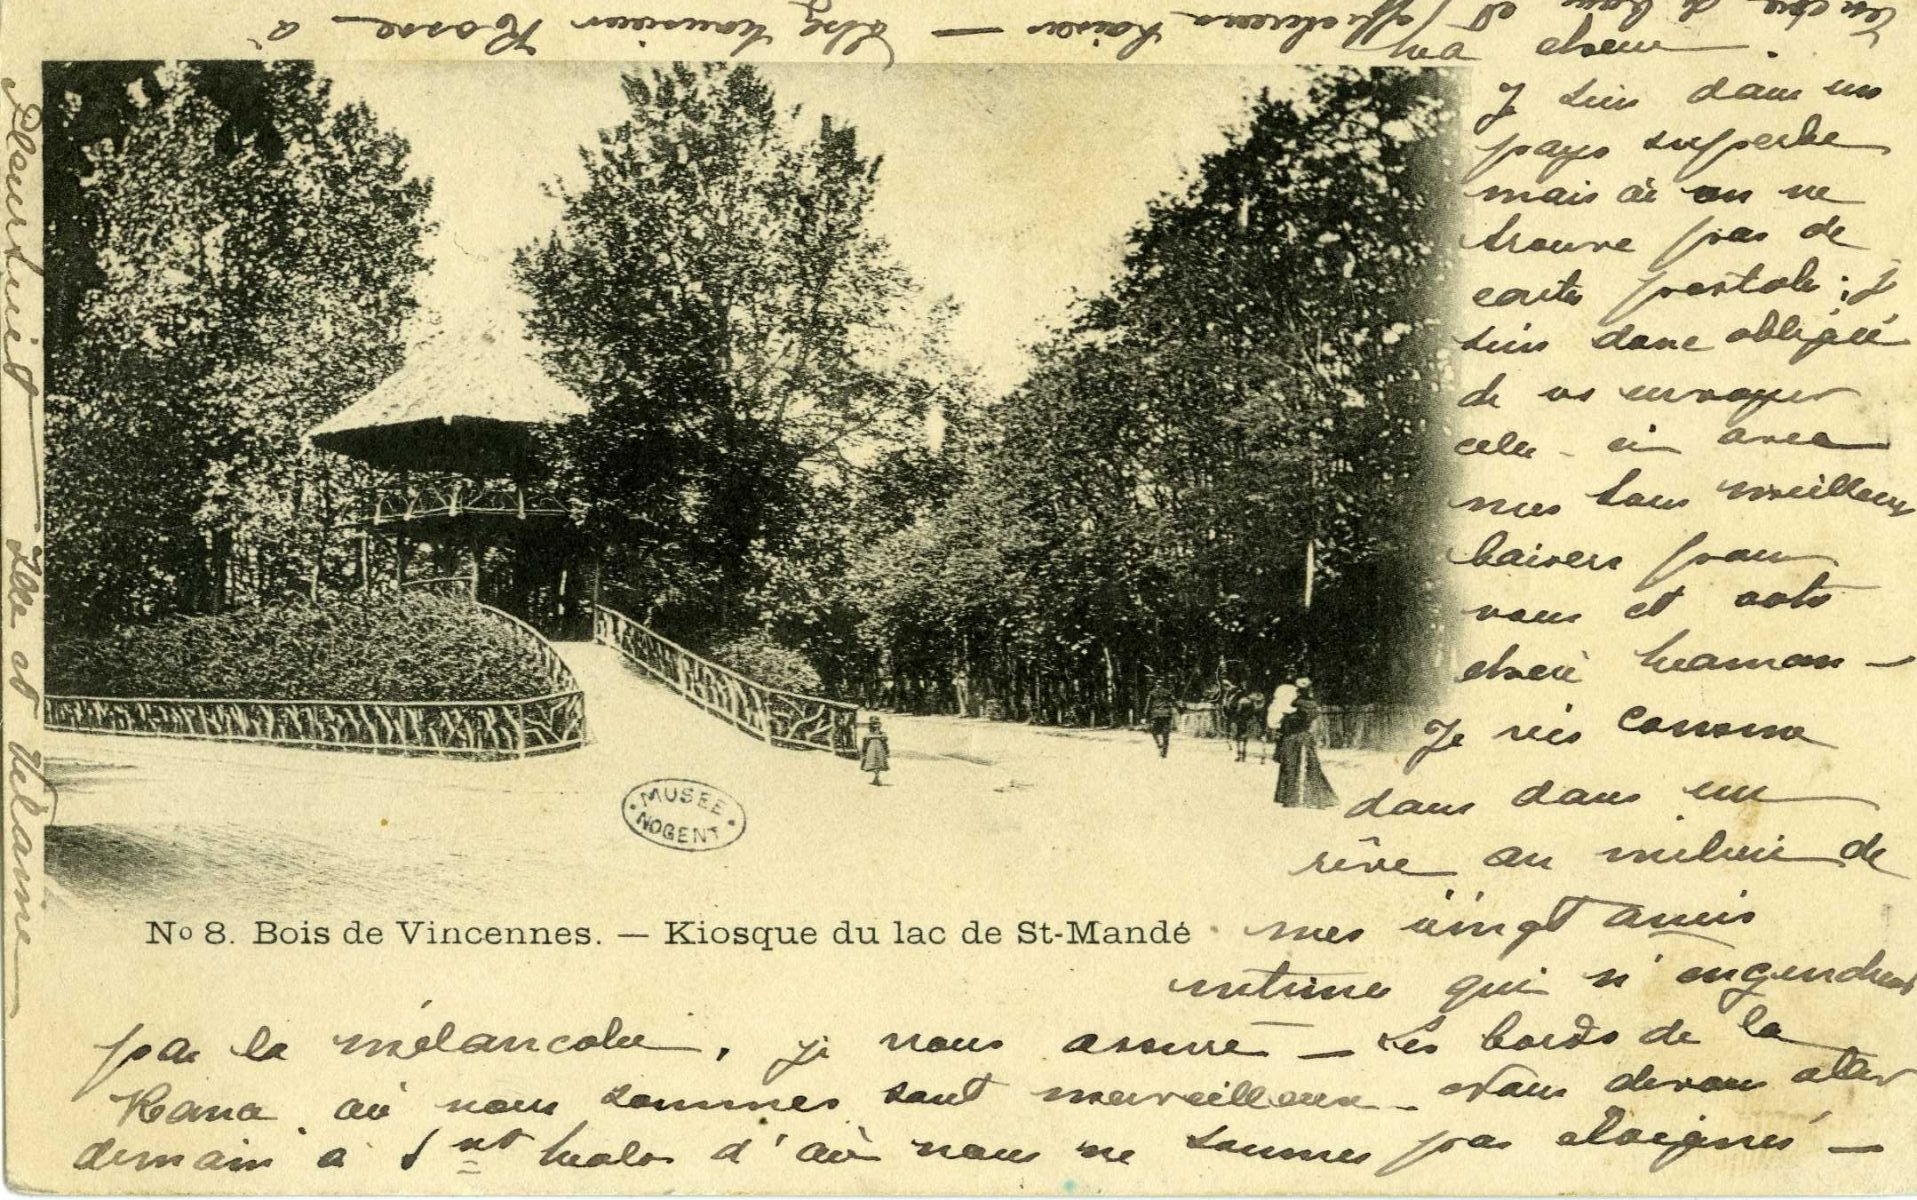 ma chère
Je suis dans un
pays superbe
mais où on ne
trouve pas de
carte postale ; je
suis donc obligée
de vs envoyer
celle-ci avec
mes tous meilleurs
baisers pour
vous et votre
chère maman —
Je vis comme
dans dans un
rêve au milieu de
mes vingt amis
intimes qui n'engendrent
pas la mélancolie, je vous assure — Les bords de la
Rance où nous sommes sont merveilleux — Nous devons aller
demain à St Malo d'où nous ne sommes pas éloignés —
Encore de baisers et
affectueux baisers —
chez Monsieur Rosse à
Pleurtuit — Ille et Vilaine
No 8. Bois de Vincennes. — Kiosque du lac de St-Mandé
MUSEE
NOGENT